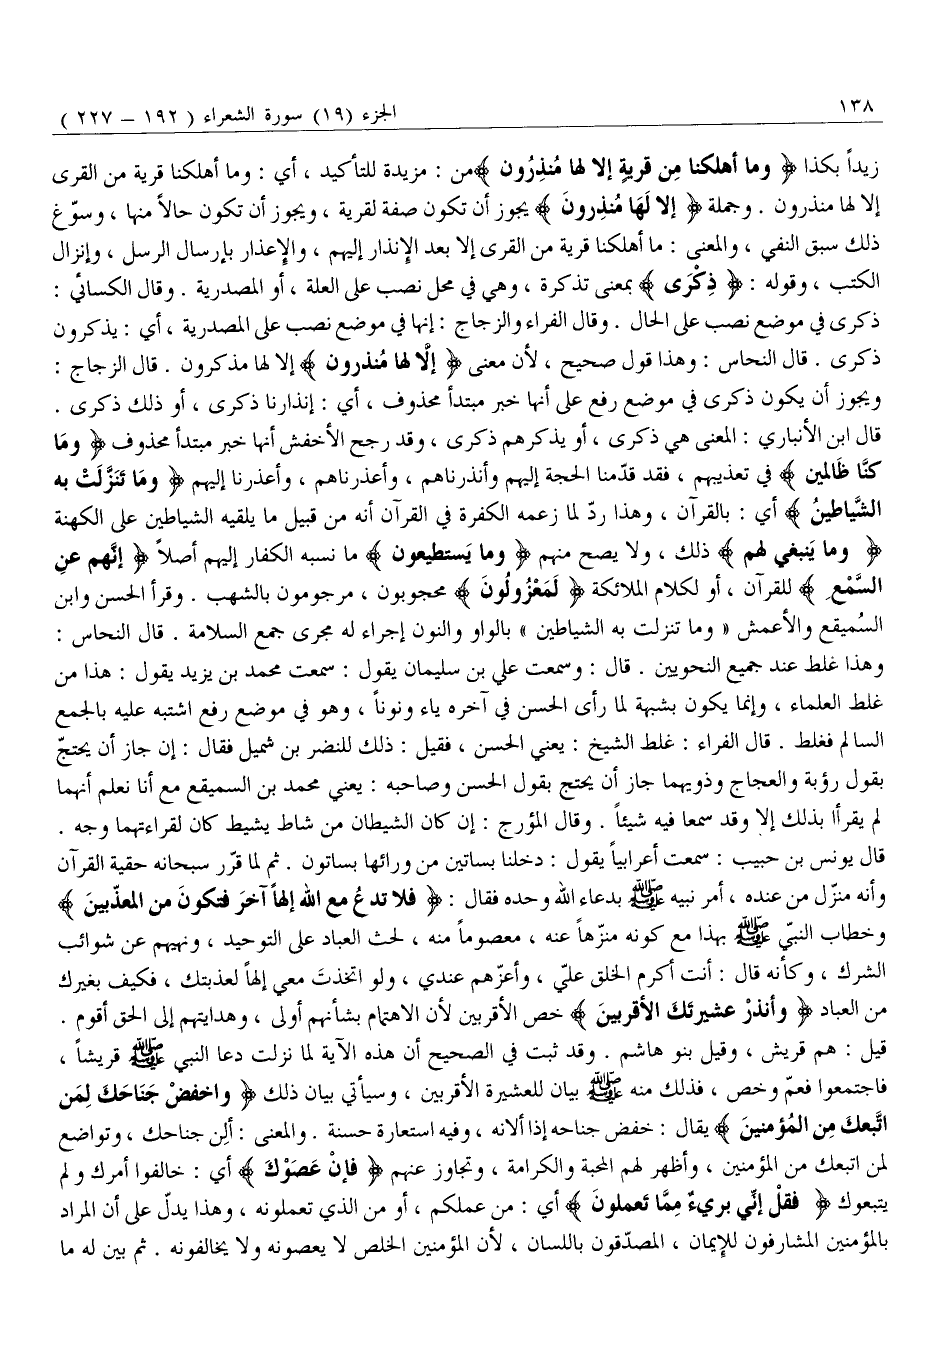 ١٣٨
الجزء (١٩) سورة الشعراء ( ١٩٢ – ٢٢٧ )
زيداً بكذا ﴿ وما أهلكنا مِن قريةٍ إلا لها مُنذِرُون ﴾من : مزيدة للتأكيد ، أي : وما أهلكنا قرية من القرى
إلا لها منذرون . وجملة ﴿ إلا لَهَا مُنذِرونَ ﴾ يجوز أن تكون صفة لقرية ، ويجوز أن تكون حالاً منها ، وسوّغ
ذلك سبق النفي ، والمعنى : ما أهلكنا قرية من القرى إلا بعد الإنذار إليهم ، والإعذار بإرسال الرسل ، وإنزال
الكتب ، وقوله : ﴿ ذِكْرَى ﴾ بمعنى تذكرة ، وهي في محل نصب على العلة ، أو المصدرية . وقال الكسائي :
ذكرى في موضع نصب على الحال . وقال الفراء والزجاج : إنها في موضع نصب على المصدرية ، أي : يذكرون
ذكرى . قال النحاس : وهذا قول صحيح ، لأن معنى ﴿ إلَّا لها مُنذرون ﴾ إلا لها مذكرون . قال الزجاج :
ويجوز أن يكون ذكرى في موضع رفع على أنها خبر مبتدأ محذوف ، أي : إنذارنا ذكرى ، أو ذلك ذكرى .
قال ابن الأنباري : المعنى هي ذكرى ، أو يذكرهم ذكرى ، وقد رجح الأخفش أنها خبر مبتدأ محذوف ﴿ ومَا
كنَّا ظَالمين ﴾ في تعذيبهم ، فقد قدّمنا الحجة إليهم وأنذرناهم ، وأعذرناهم ، وأعذرنا إليهم ﴿ ومَا تَنَزَّلَتْ به
الشَّياطينُ ﴾ أي : بالقرآن ، وهذا ردّ لما زعمه الكفرة في القرآن أنه من قبيل ما يلقيه الشياطين على الكهنة
﴿ وما يَنبغي لهم ﴾ ذلك ، ولا يصح منهم ﴿ وما يَستطيعون ﴾ ما نسبه الكفار إليهم أصلاً ﴿ إنَّهم عنِ
السَّمْعِ ﴾ للقرآن ، أو لكلام الملائكة ﴿ لَمَعْزُولُونَ ﴾ محجوبون ، مرجومون بالشهب . وقرأ الحسن وابن
السُميقع والأعمش « وما تنزلت به الشياطين » بالواو والنون إجراء له مجرى جمع السلامة . قال النحاس :
وهذا غلط عند جميع النحويين . قال : وسمعت علي بن سليمان يقول : سمعت محمد بن يزيد يقول : هذا من
غلط العلماء ، وإنما يكون بشبهة لما رأى الحسن في آخره ياء ونوناً ، وهو في موضع رفع اشتبه عليه بالجمع
السالم فغلط . قال الفراء : غلط الشيخ : يعني الحسن ، فقيل : ذلك للنضر بن شميل فقال : إن جاز أن يحتجّ
بقول رؤبة والعجاج وذويهما جاز أن يحتج بقول الحسن وصاحبه : يعني محمد بن السميقع مع أنا نعلم أنهما
لم يقرأا بذلك إلا وقد سمعا فيه شيئاً . وقال المؤرج : إن كان الشيطان من شاط يشيط كان لقراءتهما وجه .
قال يونس بن حبيب : سمعت أعرابياً يقول : دخلنا بساتين من ورائها بساتون . ثم لما قرّر سبحانه حقية القرآن
وأنه منزّل من عنده ، أمر نبيه ﷺ بدعاء الله وحده فقال : ﴿ فلا تدعُ مع الله إلهاً آخرَ فتكونَ من المعذّبينَ ﴾
وخطاب النبيّ ﷺ بهذا مع كونه منزّهاً عنه ، معصوماً منه ، لحث العباد على التوحيد ، ونهيهم عن شوائب
الشرك ، وكأنه قال : أنت أكرم الخلق عليّ ، وأعزّهم عندي ، ولو اتخذتَ معي إلهاً لعذبتك ، فكيف بغيرك
من العباد ﴿ وأنذرْ عشيرتكَ الأقربينَ ﴾ خص الأقربين لأن الاهتمام بشأنهم أولى ، وهدايتهم إلى الحق أقوم .
قيل : هم قريش ، وقيل بنو هاشم . وقد ثبت في الصحيح أن هذه الآية لما نزلت دعا النبي ﷺ قريشاً ،
فاجتمعوا فعمّ وخص ، فذلك منه ﷺ بيان للعشيرة الأقربين ، وسيأتي بيان ذلك ﴿ واخفضْ جَنَاحكَ لِمَن
اتَّبعكَ مِن المُؤمنينَ ﴾ يقال : خفض جناحه إذا ألانه ، وفيه استعارة حسنة . والمعنى : ألِن جناحك ، وتواضع
لمن اتبعك من المؤمنين ، وأظهر لهم المحبة والكرامة ، وتجاوز عنهم ﴿ فإنْ عَصَوْكَ ﴾ أي : خالفوا أمرك ولم
يتبعوك ﴿ فقلْ إنِّي بريءٌ مِمَّا تعملونَ ﴾ أي : من عملكم ، أو من الذي تعملونه ، وهذا يدلّ على أن المراد
بالمؤمنين المشارفون للإيمان ، المصدّقون باللسان ، لأن المؤمنين الخلص لا يعصونه ولا يخالفونه . ثم بين له ما